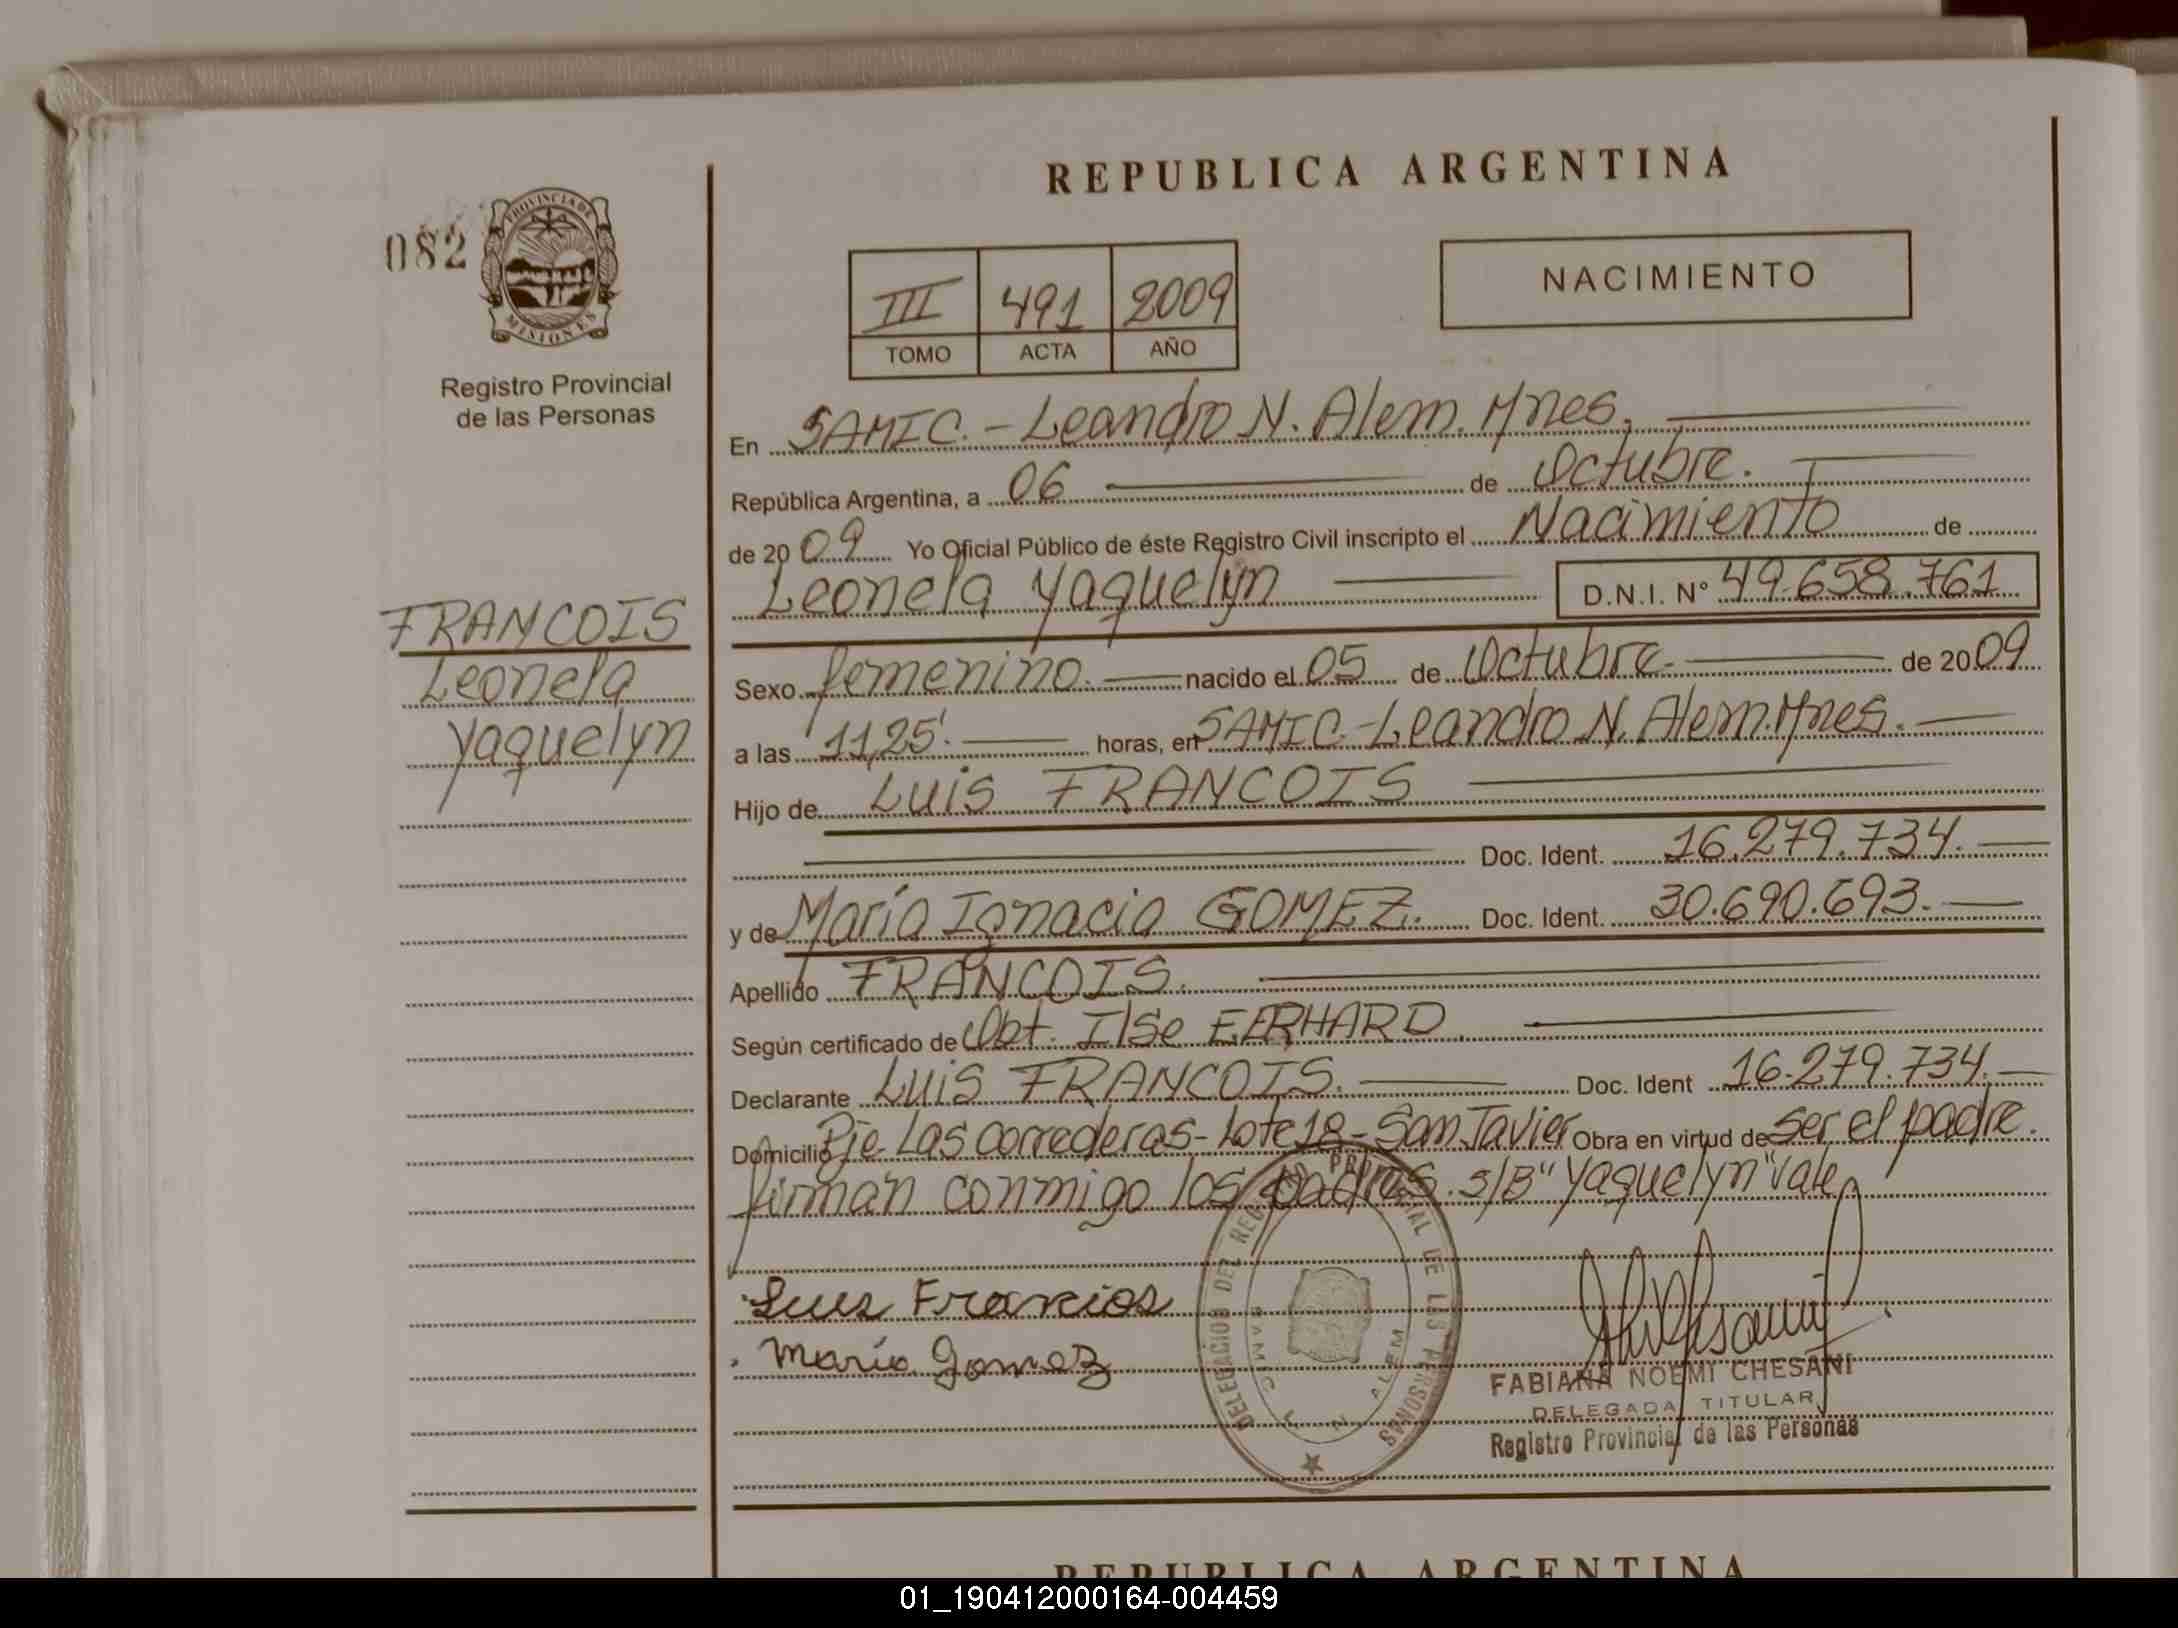 REPUBLICA ARGENTINA
082
PROVINCIA DE
MISIONES
Registro Provincial
de las Personas
III 491 2009
TOMO ACTA AÑO
NACIMIENTO
En SAMIC. - Leandro N. Alem. Mnes.
República Argentina, a 06 de Octubre.
de 2009 Yo Oficial Público de éste Registro Civil inscripto el Nacimiento de
Leonela Yaquelyn D.N.I. N° 49.658.761
FRANCOIS
Leonela
Yaquelyn
Sexo femenino. nacido el 05 de Octubre. de 2009
a las 11,25'. horas, en SAMIC. - Leandro N. Alem. Mnes.
Hijo de Luis FRANCOIS
Doc. Ident. 16.279.734.
y de María Ignacia GOMEZ. Doc. Ident. 30.690.693.
Apellido FRANCOIS.
Según certificado de Obt. Ilse
Declarante Luis FRANCOIS. Doc. Ident 16.279.734.
Domicilio Pje. Las correderas - Lote 18 - San Javier Obra en virtud de ser el padre.
firman conmigo los padres. s/B "Yaquelyn" vale
Luis Francios
María Gomez
DELEGACION DEL REGISTRO PROVINCIAL DE LAS PERSONAS
SAMIC L N ALEM
FABIANA NOEMI CHESANI
DELEGADA TITULAR
Registro Provincial de las Personas
REPUBLICA ARGENTINA
01_190412000164-004459